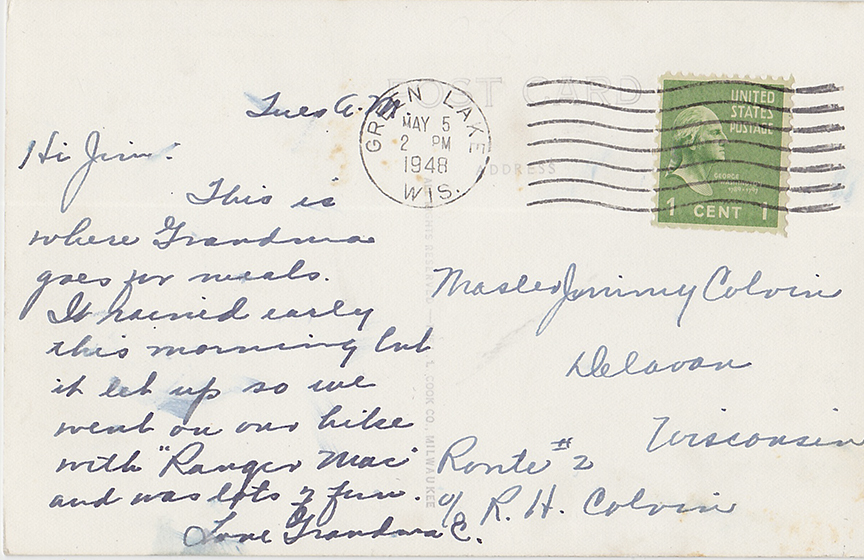 POST CARD
ADDRESS
GREEN LAKE
MAY 5
2 PM
1948
WIS.
UNITED
STATES
POSTAGE
GEORGE
WASHINGTON
1789-1797
1 CENT 1
Tues A.M.
Hi Jim.
This is
where Grandma
goes for meals.
It rained early
this morning but
it let up so we
went on our hike
with "Ranger Mac"
and was lots of fun.
Love Grandma C.
RIGHTS RESERVED — L. L. COOK CO., MILWAUKEE
Master Jimmy Colvin
Delavan
Wisconsin
Route #2
c/o R. H. Colvin